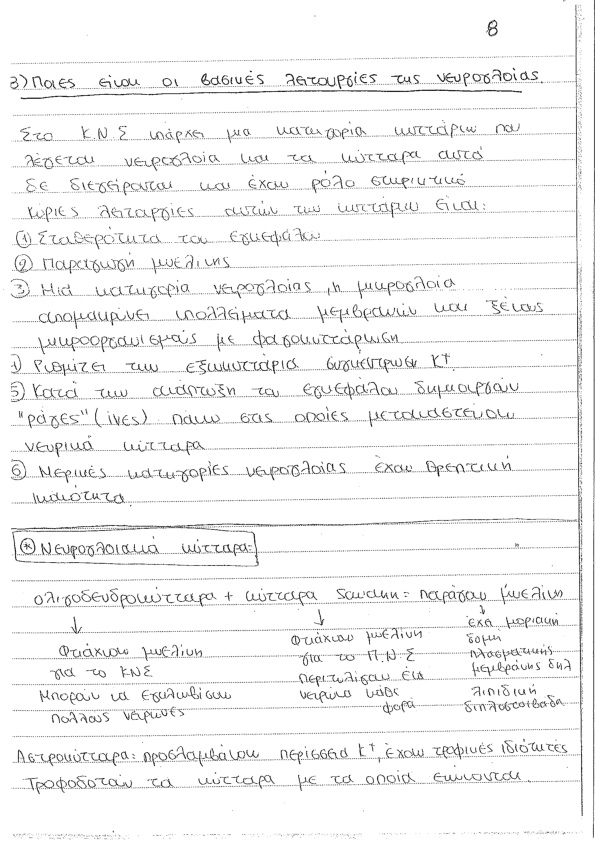 8
3) Ποιες είναι οι βασικές λειτουργίες της νευρογλοίας.
Στο Κ.Ν.Σ υπάρχει μια κατηγορία κυττάρων που
λέγεται νευρογλοία και τα κύτταρα αυτά
δε διεγείρονται και έχουν ρόλο στηρικτικό
Κύριες λειτουργίες αυτών των κυττάρων είναι:
① Σταθερότητα του εγκεφάλου
② Παραγωγή μυελίνης
③ Μια κατηγορία νευρογλοίας, η μικρογλοία
απομακρύνει υπολλείματα μεμβρανών και ξένους
μικροοργανισμούς με φαγοκυττάρωση
) Ρυθμίζει την εξωκυττάρια συγκέντρωση Κ⁺
5) Κατά την ανάπτυξη του εγκεφάλου δημιουργούν
"ράγες" (ίνες) πάνω στις οποίες μεταναστεύουν
νευρικά κύτταρα
⑥ Μερικές κατηγορίες νευρογλοίας έχουν θρεπτική
ικανότητα
⊛ Νευρογλοιακά κύτταρα:
Ολιγοδενδροκύτταρα + κύτταρα Schwann = παράγουν μυελίνη
↓ ↓ ↓
Φτιάχνουν μυελίνη Φτιάχνουν μυελίνη έχει μοριακή
για το ΚΝΣ για το Π.Ν.Σ δομή
Μπορούν να εγκλωβίσουν περιτυλίγουν ένα πλασματικής
πολλούς νευρώνες νευρώνα κάθε μεμβράνης δηλ
φορά λιπιδική
διπλοστοιβάδα
Αστροκύτταρα: προσλαμβάνουν περίσσεια Κ⁺, έχουν τροφικές ιδιότητες
Τροφοδοτούν τα κύτταρα με τα οποία ενώνονται.